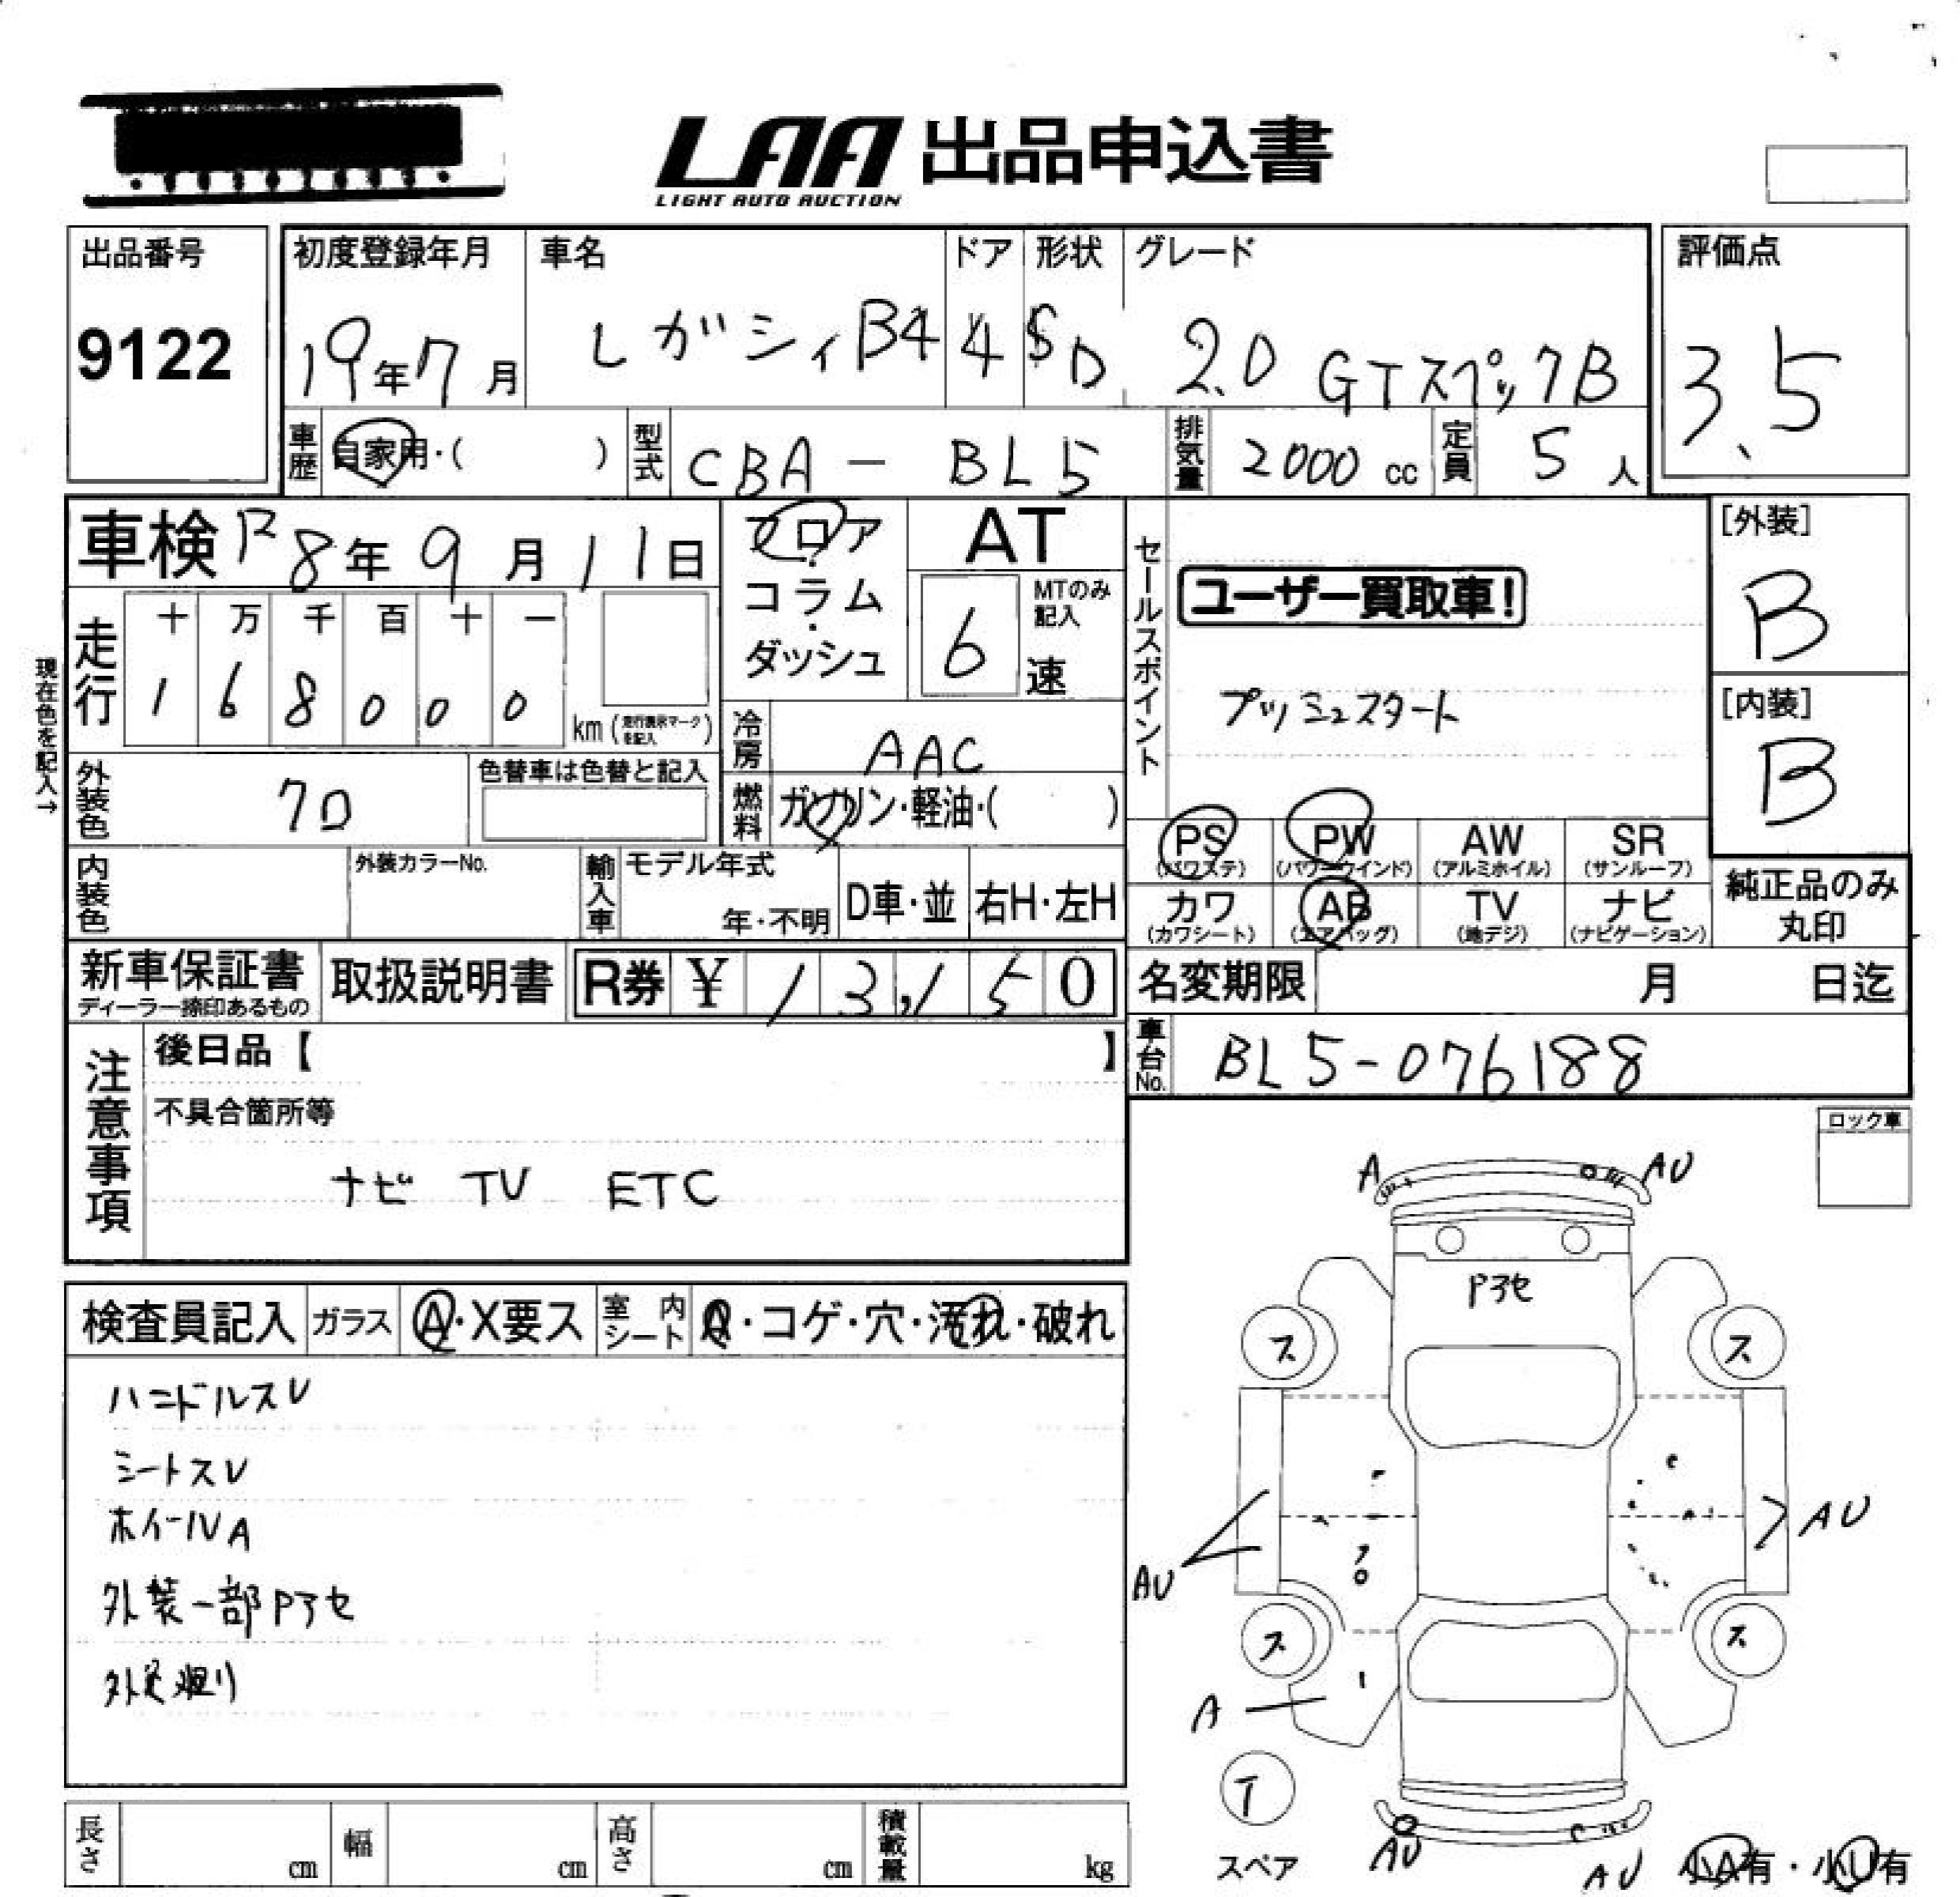 LAA 出品申込書
LIGHT AUTO AUCTION
出品番号
9122
初度登録年月
19年7月
車名
レガシィB4
ドア
4
形状
SD
グレード
2.0 GTスペックB
評価点
3.5
車歴
自家用・( )
型式
CBA - BL5
排気量
2000 cc
定員
5 人
車検 R8年9月11日
フロア・コラム・ダッシュ
AT
MTのみ記入
6 速
セールスポイント
ユーザー買取車!
プッシュスタート
[外装]
B
[内装]
B
現在色を記入→
走行
十 万 千 百 十 一
1 6 8 0 0 0
km (走行表示マークを記入)
冷房
AAC
外装色
クロ
色替車は色替と記入
燃料
ガソリン・軽油・( )
PS (パワステ)
PW (パワーウインド)
AW (アルミホイル)
SR (サンルーフ)
カワ (カワシート)
AB (エアバッグ)
TV (地デジ)
ナビ (ナビゲーション)
純正品のみ
丸印
内装色
外装カラーNo.
輸入車
モデル年式
年・不明
D車・並
右H・左H
新車保証書
ディーラー捺印あるもの
取扱説明書
R券 ¥ 13,150
名変期限 月 日迄
車台No.
BL5-076188
注意事項
後日品【 】
不具合箇所等
ナビ TV ETC
ロック車
検査員記入
ガラス
A・X要ス
室内シート
・コゲ・穴・汚れ・破れ
ハンドルスレ
シートスレ
ホイールA
外装一部Pアセ
A
AU
Pアセ
ス
ス
AU
AU
ス
ス
A
T
スペア
AU
AU
小A有・小U有
長さ cm
幅 cm
高さ cm
積載量 kg